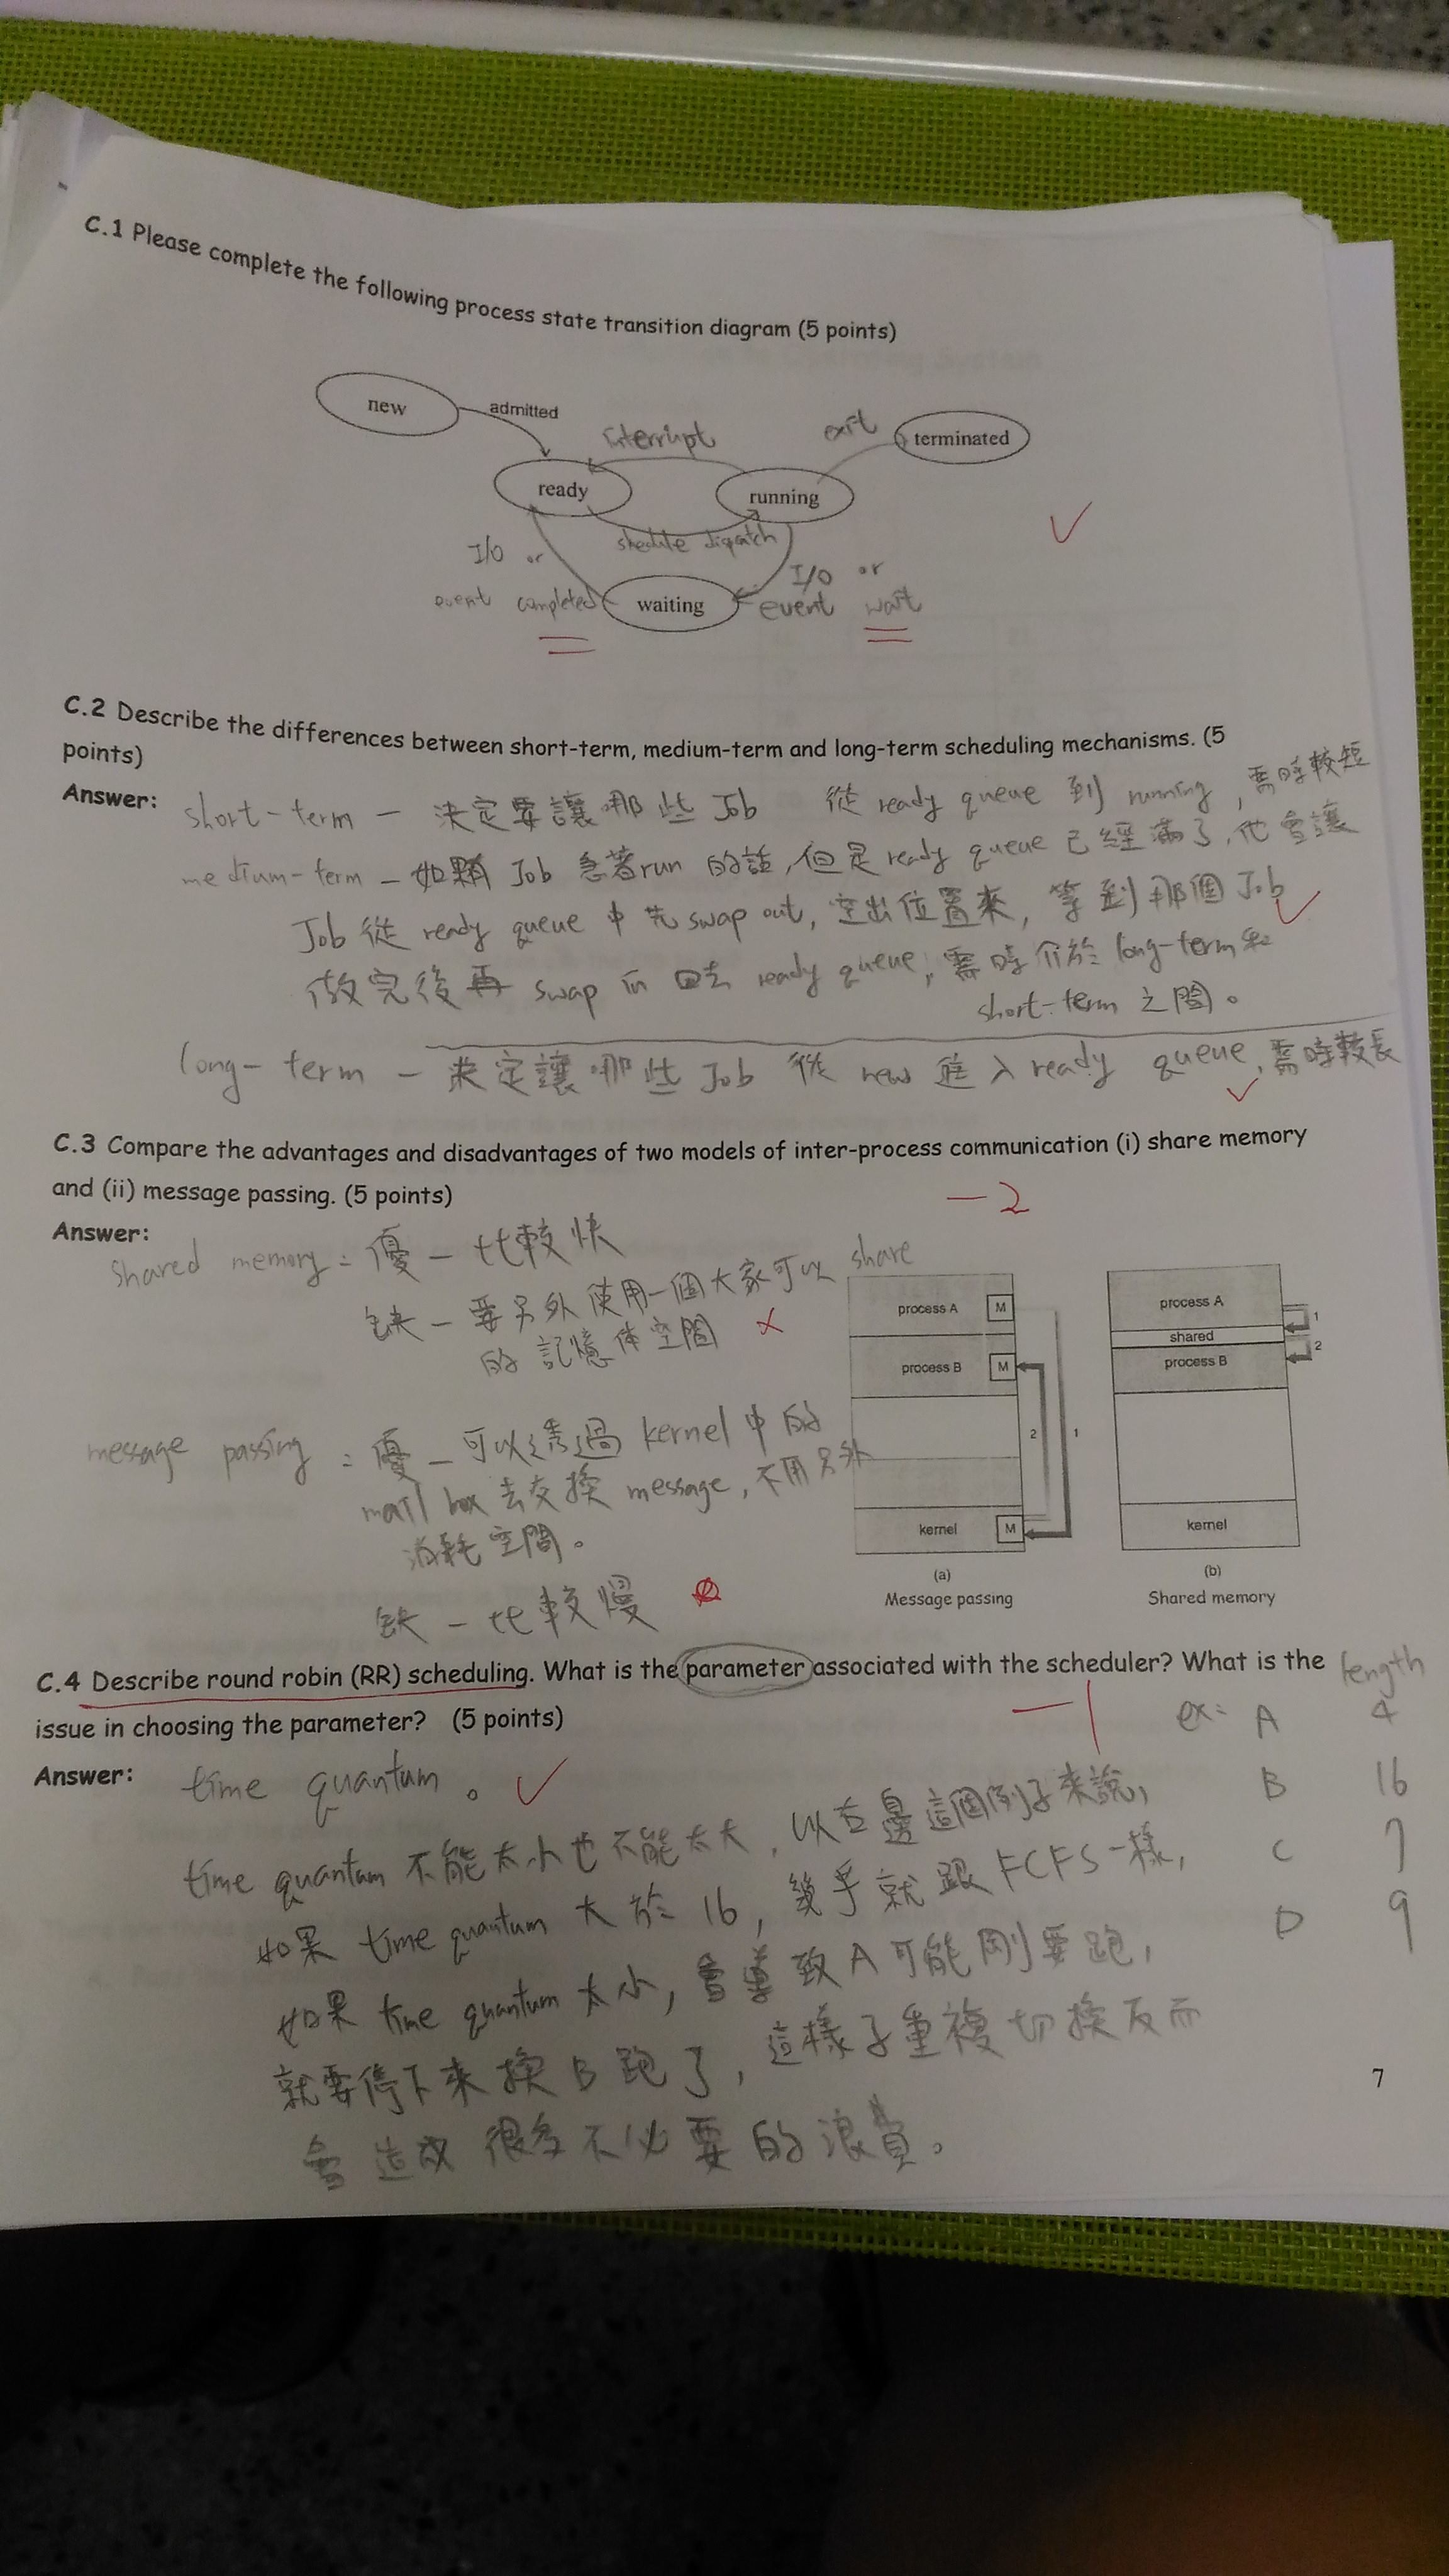 C.1 Please complete the following process state transition diagram (5 points)
new
admitted
interrupt
exit
terminated
ready
running
shedule dispatch
I/O or
event completed
waiting
I/O or
event wait
C.2 Describe the differences between short-term, medium-term and long-term scheduling mechanisms. (5
points)
Answer:
short-term — 決定要讓哪些 Job 從 ready queue 到 running, 需時較短
medium-term — 如果有 Job 急著run 的話, 但是 ready queue 已經滿了, 他會讓
Job 從 ready queue 中先 swap out, 空出位置來, 等到那個 Job
做完後再 swap in 回去 ready queue, 需時介於 long-term 和
short-term 之間。
long-term — 決定讓哪些 Job 從 new 進入 ready queue, 需時較長
C.3 Compare the advantages and disadvantages of two models of inter-process communication (i) share memory
and (ii) message passing. (5 points)
-2
Answer:
shared memory = 優 — 比較快
缺 — 要另外使用一個大家可以 share
的記憶体空間
message passing = 優 — 可以透過 kernel 中的
mail box 去交換 message, 不用另外
消耗空間。
缺 — 比較慢
process A
M
process B
M
2
1
kernel
M
(a)
Message passing
process A
shared
process B
1
2
kernel
(b)
Shared memory
C.4 Describe round robin (RR) scheduling. What is the parameter associated with the scheduler? What is the
issue in choosing the parameter? (5 points)
-1
ex: length
A 4
B 16
C 7
D 9
Answer:
time quantum。
time quantum 不能太小也不能太大, 以右邊這個例子來說,
如果 time quantum 大於 16, 幾乎就跟 FCFS 一樣,
如果 time quantum 太小, 會導致 A 可能剛要跑,
就要停下來換 B 跑了, 這樣子重複切換反而
會造成很多不必要的浪費。
7